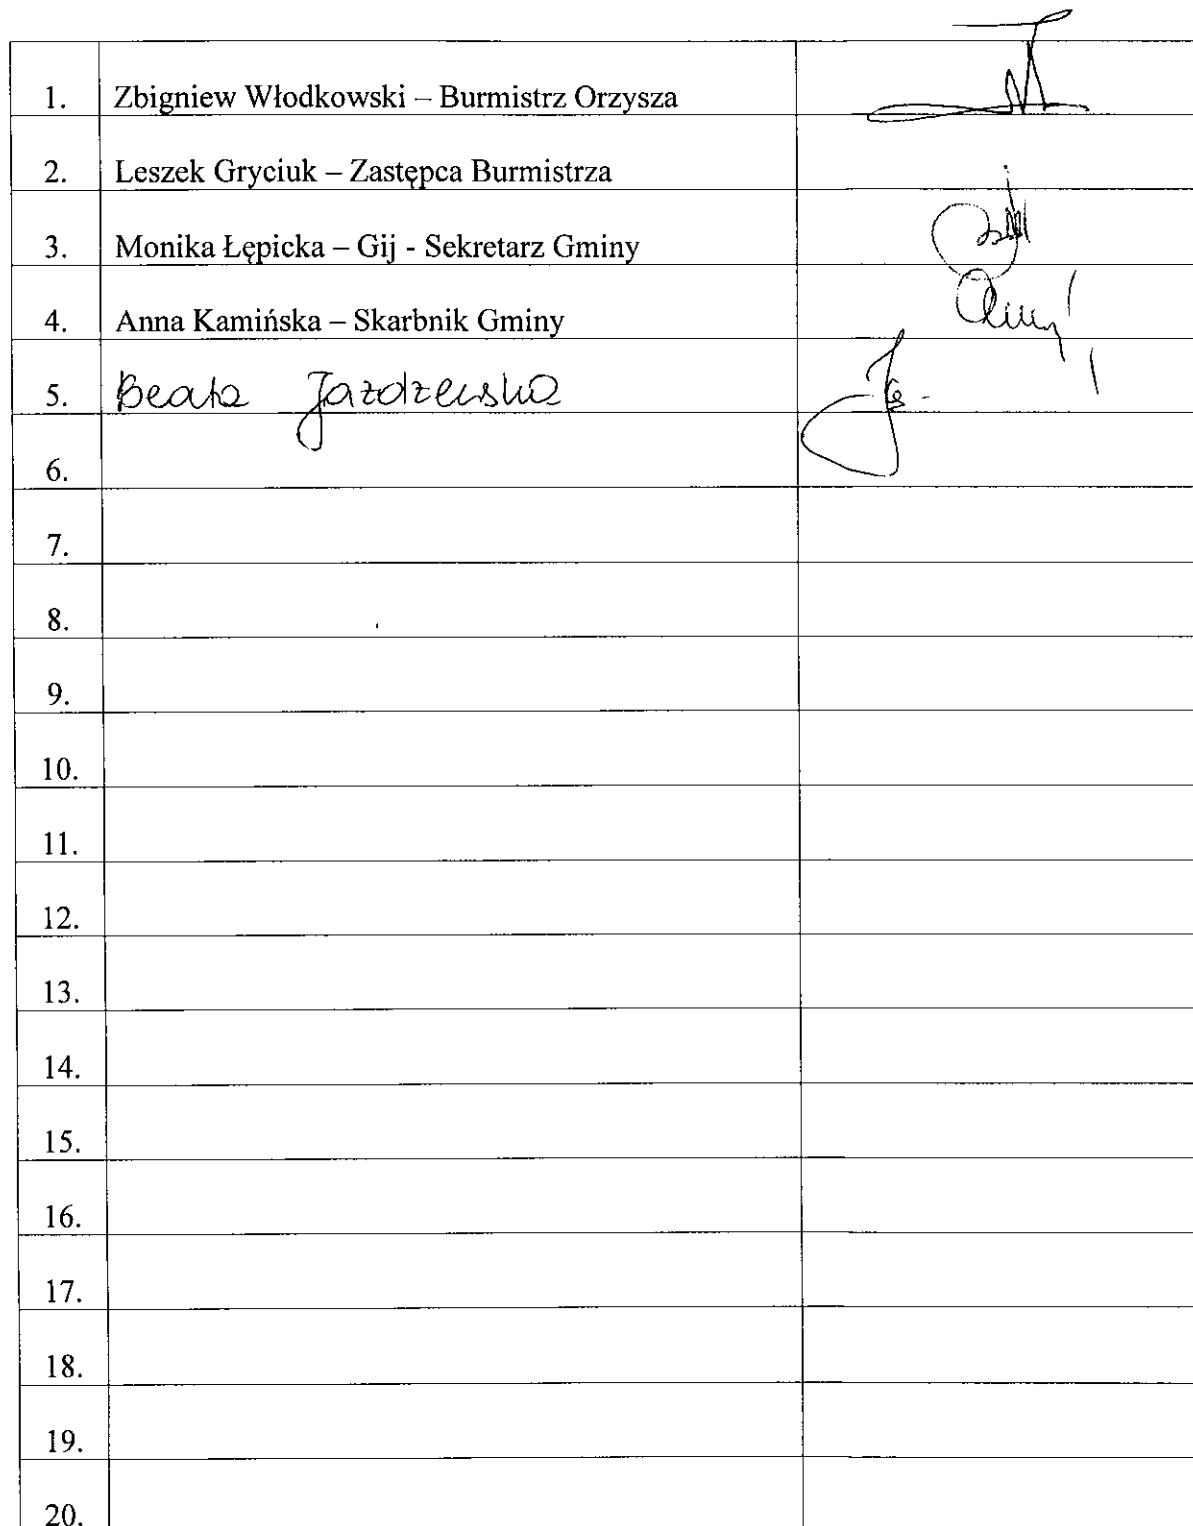 1. Zbigniew Włodkowski – Burmistrz Orzysza
2. Leszek Gryciuk – Zastępca Burmistrza
3. Monika Łępicka – Gij - Sekretarz Gminy
4. Anna Kamińska – Skarbnik Gminy
5. Beata Jazdzewska
6.
7.
8.
9.
10.
11.
12.
13.
14.
15.
16.
17.
18.
19.
20.